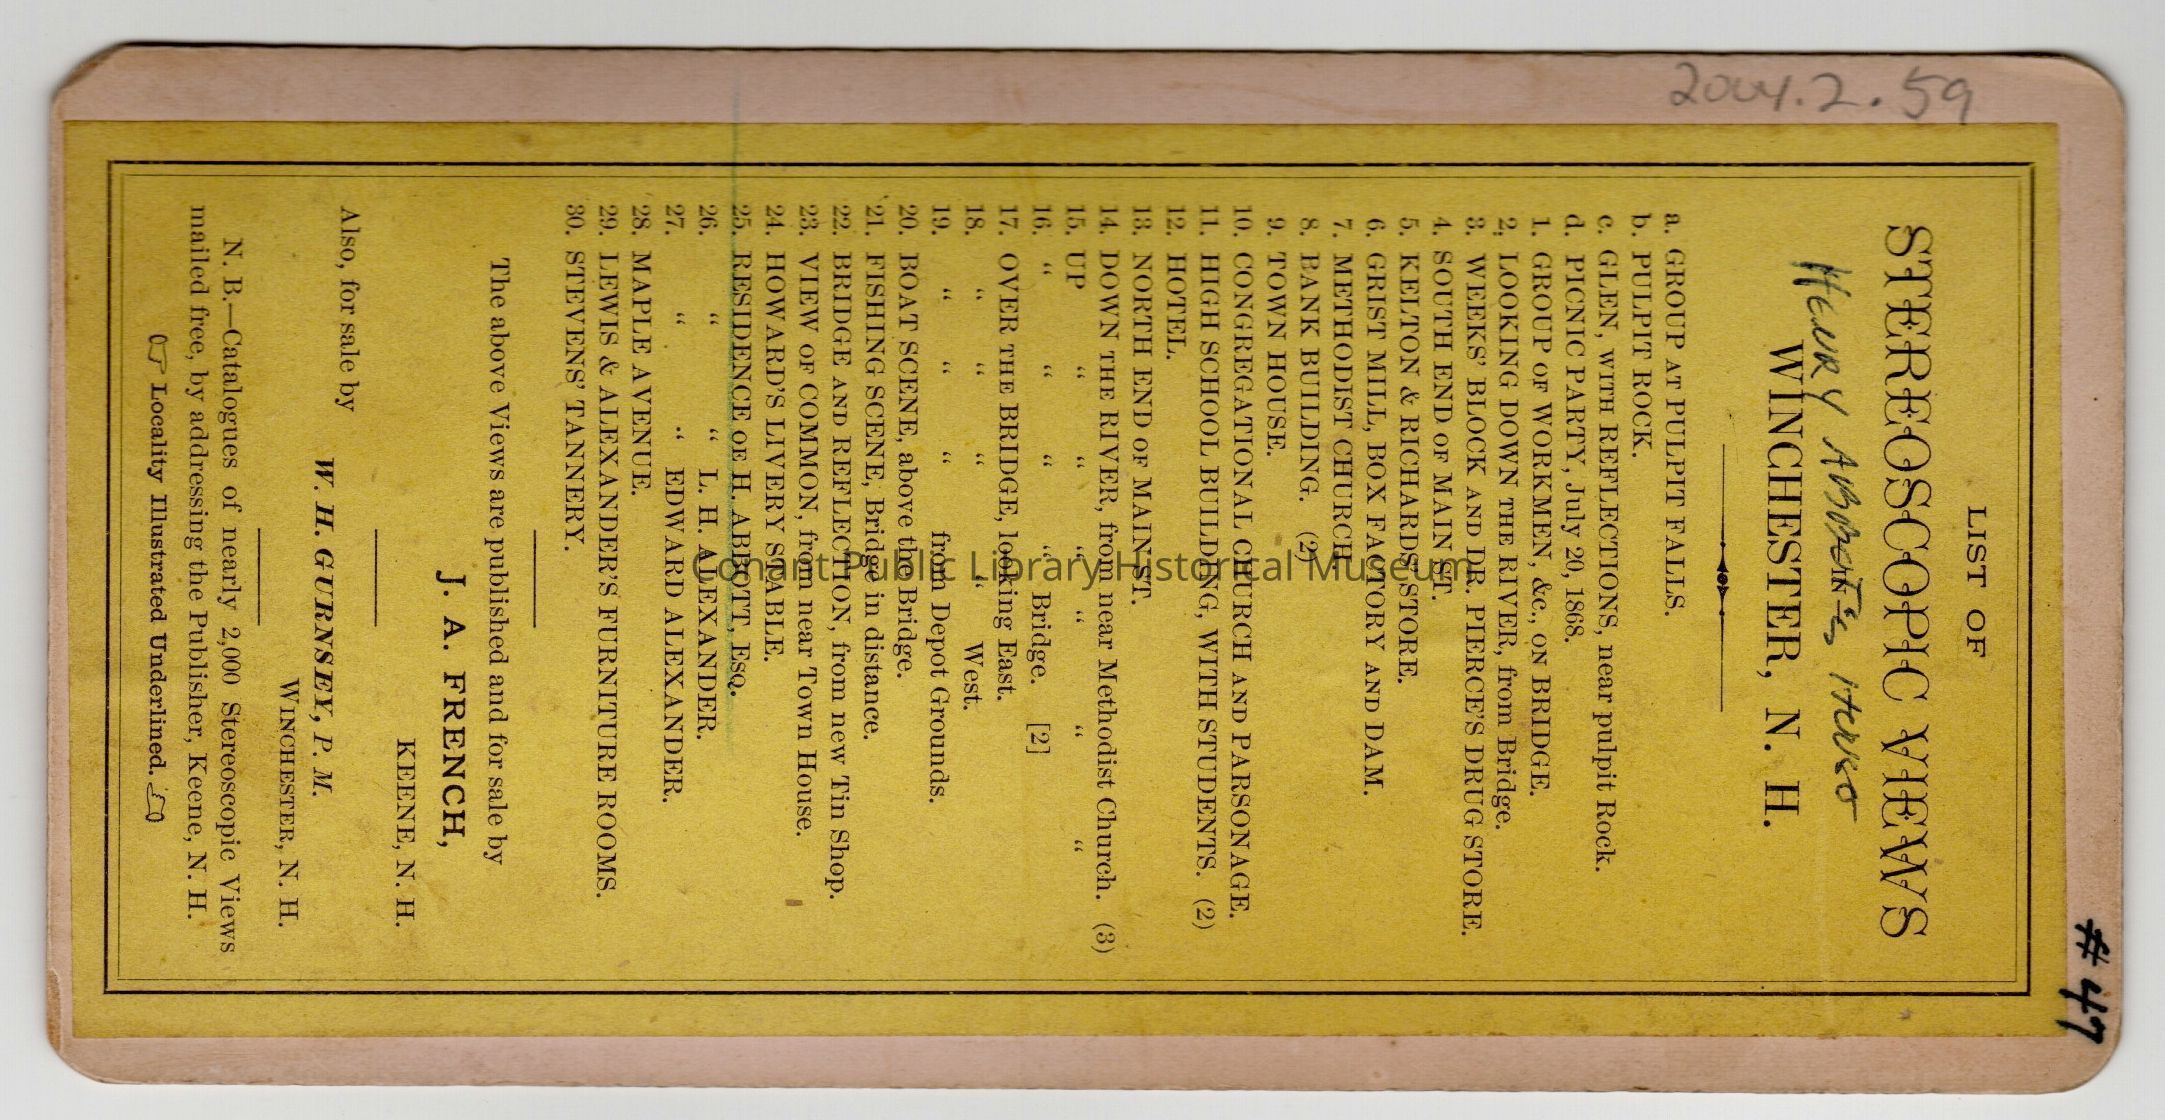 2004.2.59
# 47
LIST OF
STEREOSCOPIC VIEWS
IN
Henry Abbott's House
WINCHESTER, N. H.
a. GROUP AT PULPIT FALLS.
b. PULPIT ROCK.
c. GLEN, WITH REFLECTIONS, near pulpit Rock.
d. PICNIC PARTY, July 20, 1868.
1. GROUP OF WORKMEN, &c., ON BRIDGE.
2. LOOKING DOWN THE RIVER, from Bridge.
3. WEEKS' BLOCK AND DR. PIERCE'S DRUG STORE.
4. SOUTH END OF MAIN ST.
5. KELTON & RICHARDS' STORE.
6. GRIST MILL, BOX FACTORY AND DAM.
7. METHODIST CHURCH.
8. BANK BUILDING. (2)
9. TOWN HOUSE.
10. CONGREGATIONAL CHURCH AND PARSONAGE.
11. HIGH SCHOOL BUILDING, WITH STUDENTS. (2)
12. HOTEL.
13. NORTH END OF MAIN ST.
14. DOWN THE RIVER, from near Methodist Church. (3)
15. UP " " " " " "
16. " " " " Bridge. [2]
17. OVER THE BRIDGE, looking East.
18. " " " " West.
19. " " " from Depot Grounds.
20. BOAT SCENE, above the Bridge.
21. FISHING SCENE, Bridge in distance.
22. BRIDGE AND REFLECTION, from new Tin Shop.
23. VIEW OF COMMON, from near Town House.
24. HOWARD'S LIVERY STABLE.
25. RESIDENCE OF H. ABBOTT, ESQ.
26. " " L. H. ALEXANDER.
27. " " EDWARD ALEXANDER.
28. MAPLE AVENUE.
29. LEWIS & ALEXANDER'S FURNITURE ROOMS.
30. STEVENS' TANNERY.
The above Views are published and for sale by
J. A. FRENCH,
KEENE, N. H.
Also, for sale by
W. H. GURNSEY, P. M.
WINCHESTER, N. H.
N. B.—Catalogues of nearly 2,000 Stereoscopic Views
mailed free, by addressing the Publisher, Keene, N. H.
☞ Locality Illustrated Underlined. ☜
Conant Public Library Historical Museum